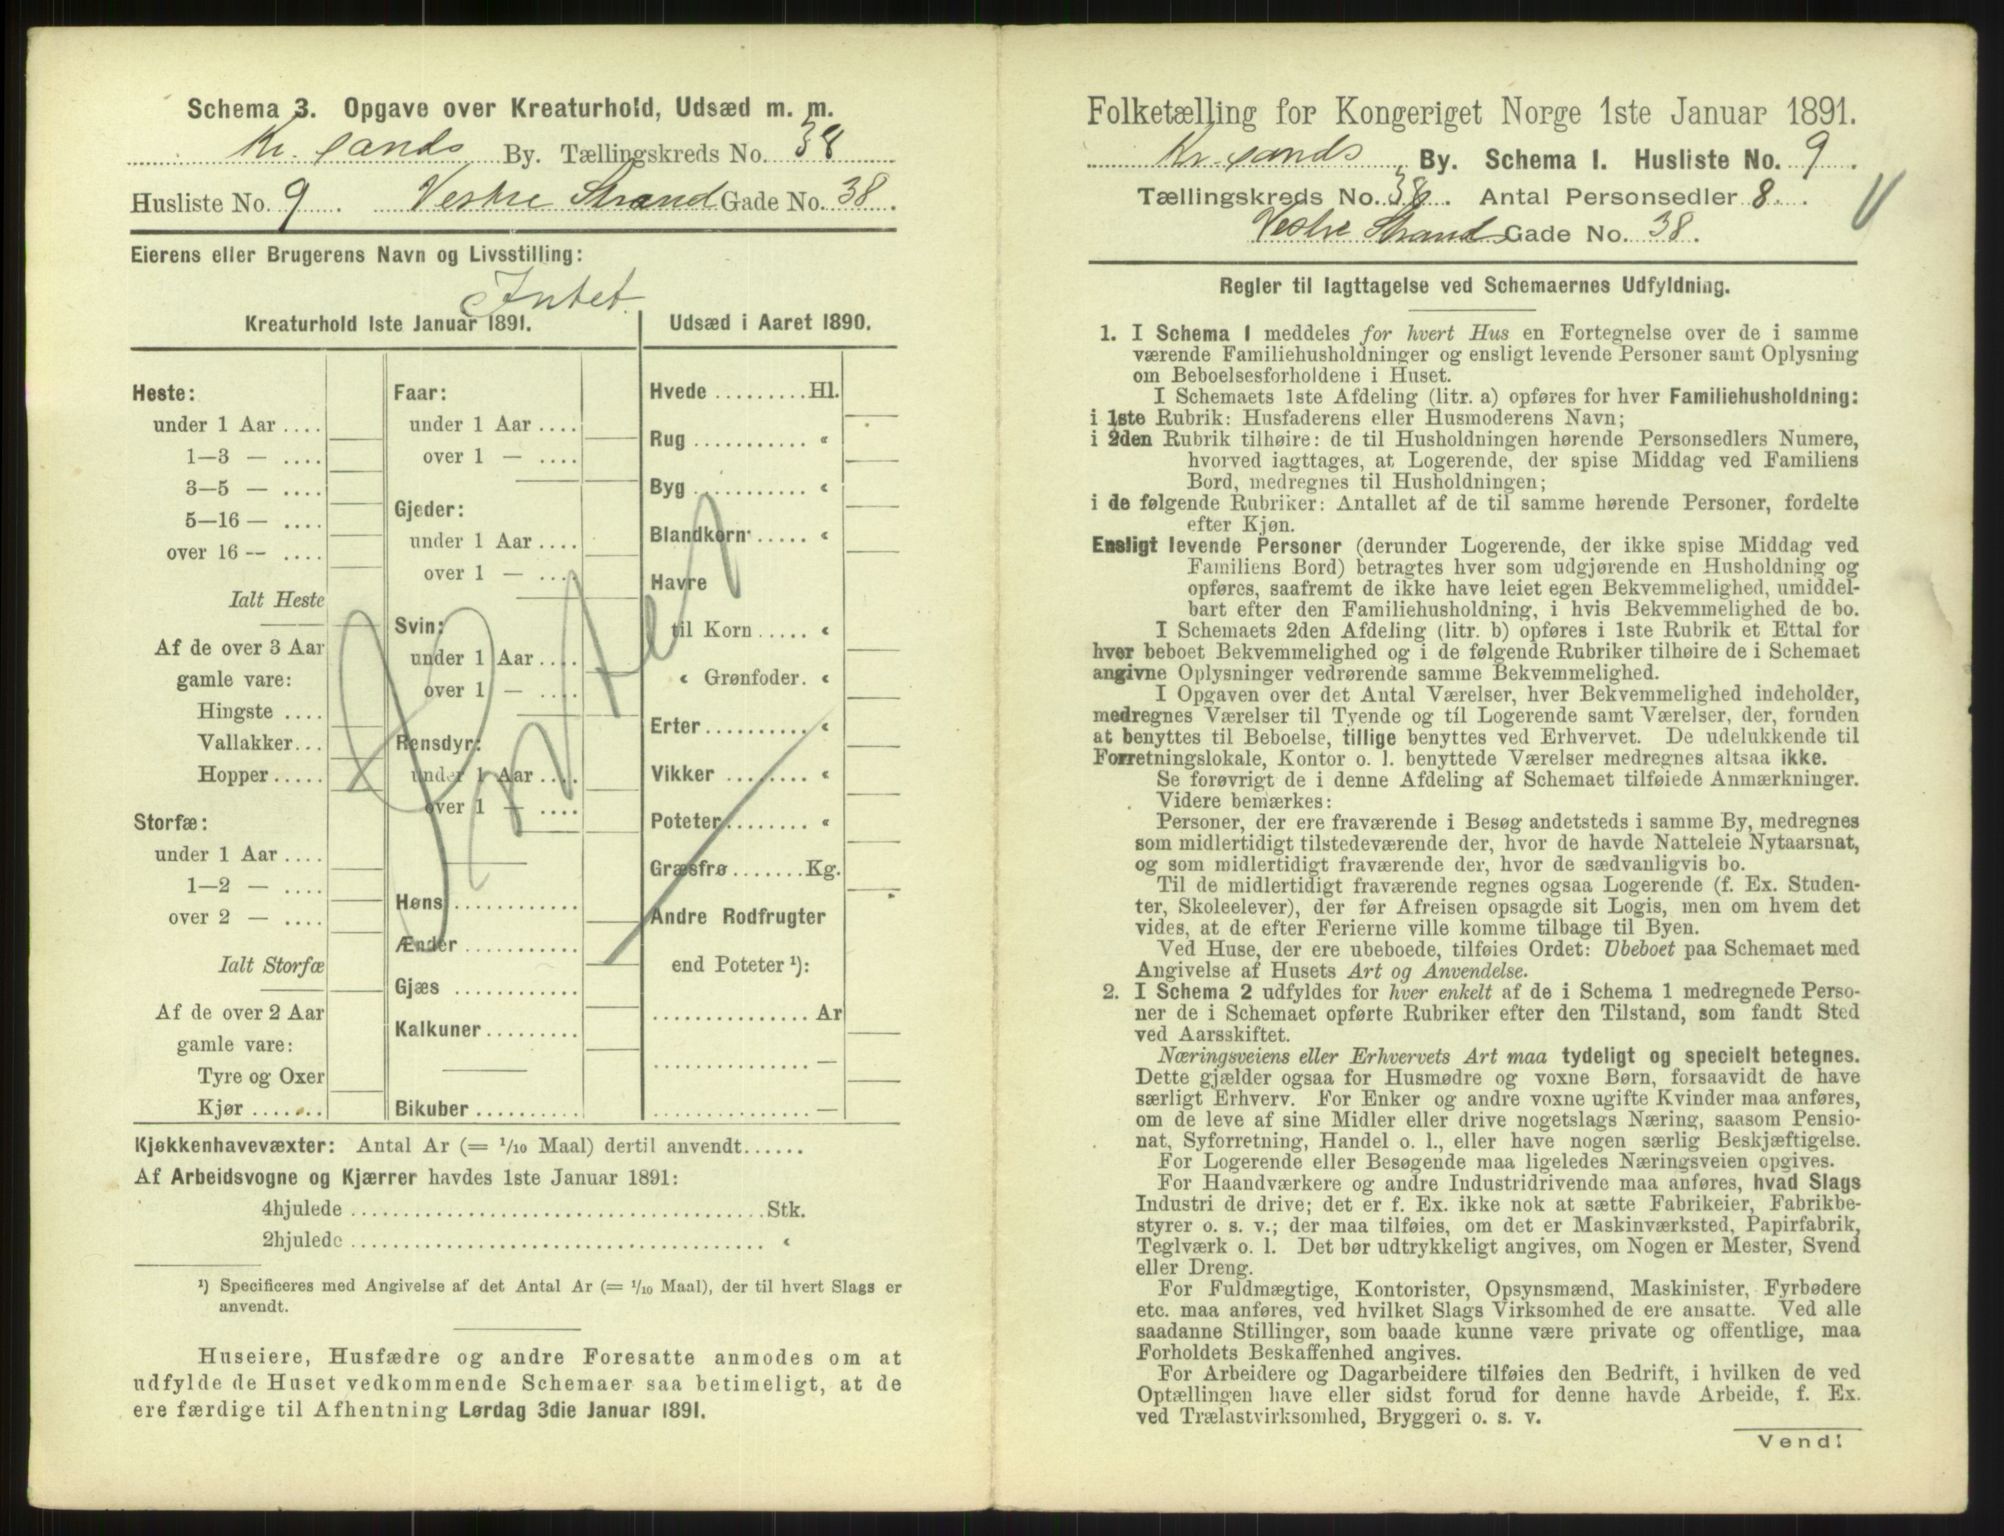 Schema 3. Opgave over Kreaturhold, Udsæd m. m.
Kr. sands By. Tællingskreds No. 38
Husliste No. 9 Vestre Strand Gade No. 38.
Eierens eller Brugerens Navn og Livsstilling:
Intet.
Kreaturhold 1ste Januar 1891.
Heste:
under 1 Aar ....
1—3 — ....
3—5 — ....
5—16 — ....
over 16 — ....
Ialt Heste
Af de over 3 Aar
gamle vare:
Hingste ....
Vallakker...
Hopper.....
Storfæ:
under 1 Aar ....
1—2 — ....
over 2 — ....
Ialt Storfæ
Af de over 2 Aar
gamle vare:
Tyre og Oxer
Kjør .......
Faar:
under 1 Aar ....
over 1 — ....
Gjeder:
under 1 Aar....
over 1 — ....
Svin:
under 1 Aar....
over 1 — ....
Rensdyr:
under 1 Aar ....
over 1 — ....
Høns............
Ænder...........
Gjæs ............
Kalkuner.........
Bikuber..........
Udsæd i Aaret 1890.
Hvede .........Hl.
Rug ........... «
Byg ........... «
Blandkorn..... «
Havre
til Korn ..... «
« Grønfoder. «
Erter.......... «
Vikker ........ «
Poteter........ «
Græsfrø.......Kg.
Andre Rodfrugter
end Poteter ¹):
............... Ar
............... —
............... —
Intet
Kjøkkenhavevæxter: Antal Ar (= 1/10 Maal) dertil anvendt......
Af Arbeidsvogne og Kjærrer havdes 1ste Januar 1891:
4hjulede .......................................Stk.
2hjulede ....................................... «
¹) Specificeres med Angivelse af det Antal Ar (= 1/10 Maal), der til hvert Slags er
anvendt.
Huseiere, Husfædre og andre Foresatte anmodes om at
udfylde de Huset vedkommende Schemaer saa betimeligt, at de
ere færdige til Afhentning Lørdag 3die Januar 1891.
Folketælling for Kongeriget Norge 1ste Januar 1891.
Kr. sands By. Schema 1. Husliste No. 9.
Tællingskreds No. 38. Antal Personsedler 8.
Vestre Strand Gade No. 38.
Regler til Iagttagelse ved Schemaernes Udfyldning.
1. I Schema 1 meddeles for hvert Hus en Fortegnelse over de i samme
værende Familiehusholdninger og ensligt levende Personer samt Oplysning
om Beboelsesforholdene i Huset.
I Schemaets 1ste Afdeling (litr. a) opføres for hver Familiehusholdning:
i 1ste Rubrik: Husfaderens eller Husmoderens Navn;
i 2den Rubrik tilhøire: de til Husholdningen hørende Personsedlers Numere,
hvorved iagttages, at Logerende, der spise Middag ved Familiens
Bord, medregnes til Husholdningen;
i de følgende Rubriker: Antallet af de til samme hørende Personer, fordelte
efter Kjøn.
Ensligt levende Personer (derunder Logerende, der ikke spise Middag ved
Familiens Bord) betragtes hver som udgjørende en Husholdning og
opføres, saafremt de ikke have leiet egen Bekvemmelighed, umiddel-
bart efter den Familiehusholdning, i hvis Bekvemmelighed de bo.
I Schemaets 2den Afdeling (litr. b) opføres i 1ste Rubrik et Ettal for
hver beboet Bekvemmelighed og i de følgende Rubriker tilhøire de i Schemaet
angivne Oplysninger vedrørende samme Bekvemmelighed.
I Opgaven over det Antal Værelser, hver Bekvemmelighed indeholder,
medregnes Værelser til Tyende og til Logerende samt Værelser, der, foruden
at benyttes til Beboelse, tillige benyttes ved Erhvervet. De udelukkende til
Forretningslokale, Kontor o. l. benyttede Værelser medregnes altsaa ikke.
Se forøvrigt de i denne Afdeling af Schemaet tilføiede Anmærkninger.
Videre bemærkes:
Personer, der ere fraværende i Besøg andetsteds i samme By, medregnes
som midlertidigt tilstedeværende der, hvor de havde Natteleie Nytaarsnat,
og som midlertidigt fraværende der, hvor de sædvanligvis bo.
Til de midlertidigt fraværende regnes ogsaa Logerende (f. Ex. Studen-
ter, Skoleelever), der før Afreisen opsagde sit Logis, men om hvem det
vides, at de efter Ferierne ville komme tilbage til Byen.
Ved Huse, der ere ubeboede, tilføies Ordet: Ubeboet paa Schemaet med
Angivelse af Husets Art og Anvendelse.
2. I Schema 2 udfyldes for hver enkelt af de i Schema 1 medregnede Perso-
ner de i Schemaet opførte Rubriker efter den Tilstand, som fandt Sted
ved Aarsskiftet.
Næringsveiens eller Erhvervets Art maa tydeligt og specielt betegnes.
Dette gjælder ogsaa for Husmødre og voxne Børn, forsaavidt de have
særligt Erhverv. For Enker og andre voxne ugifte Kvinder maa anføres,
om de leve af sine Midler eller drive nogetslags Næring, saasom Pensio-
nat, Syforretning, Handel o. l., eller have nogen særlig Beskjæftigelse.
For Logerende eller Besøgende maa ligeledes Næringsveien opgives.
For Haandværkere og andre Industridrivende maa anføres, hvad Slags
Industri de drive; det er f. Ex. ikke nok at sætte Fabrikeier, Fabrikbe-
styrer o. s. v.; der maa tilføies, om det er Maskinværksted, Papirfabrik,
Teglværk o. l. Det bør udtrykkeligt angives, om Nogen er Mester, Svend
eller Dreng.
For Fuldmægtige, Kontorister, Opsynsmænd, Maskinister, Fyrbødere
etc. maa anføres, ved hvilket Slags Virksomhed de ere ansatte. Ved alle
saadanne Stillinger, som baade kunne være private og offentlige, maa
Forholdets Beskaffenhed angives.
For Arbeidere og Dagarbeidere tilføies den Bedrift, i hvilken de ved
Optællingen have eller sidst forud for denne havde Arbeide, f. Ex.
ved Trælastvirksomhed, Bryggeri o. s. v.
Vend!